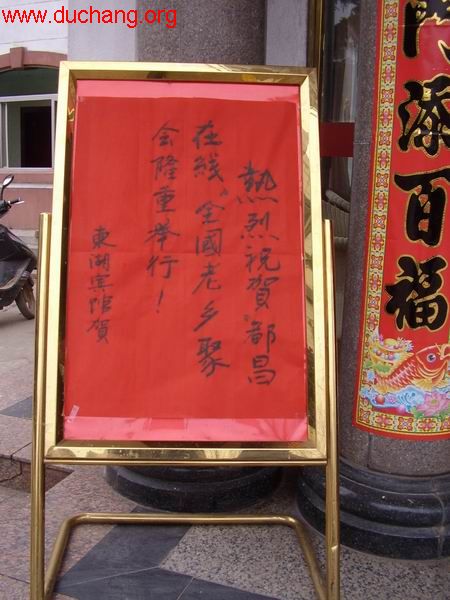 www.duchang.org
熱烈祝賀“都昌
在线”全國老乡聚
会隆重举行！
東湖宾馆賀
门添百福